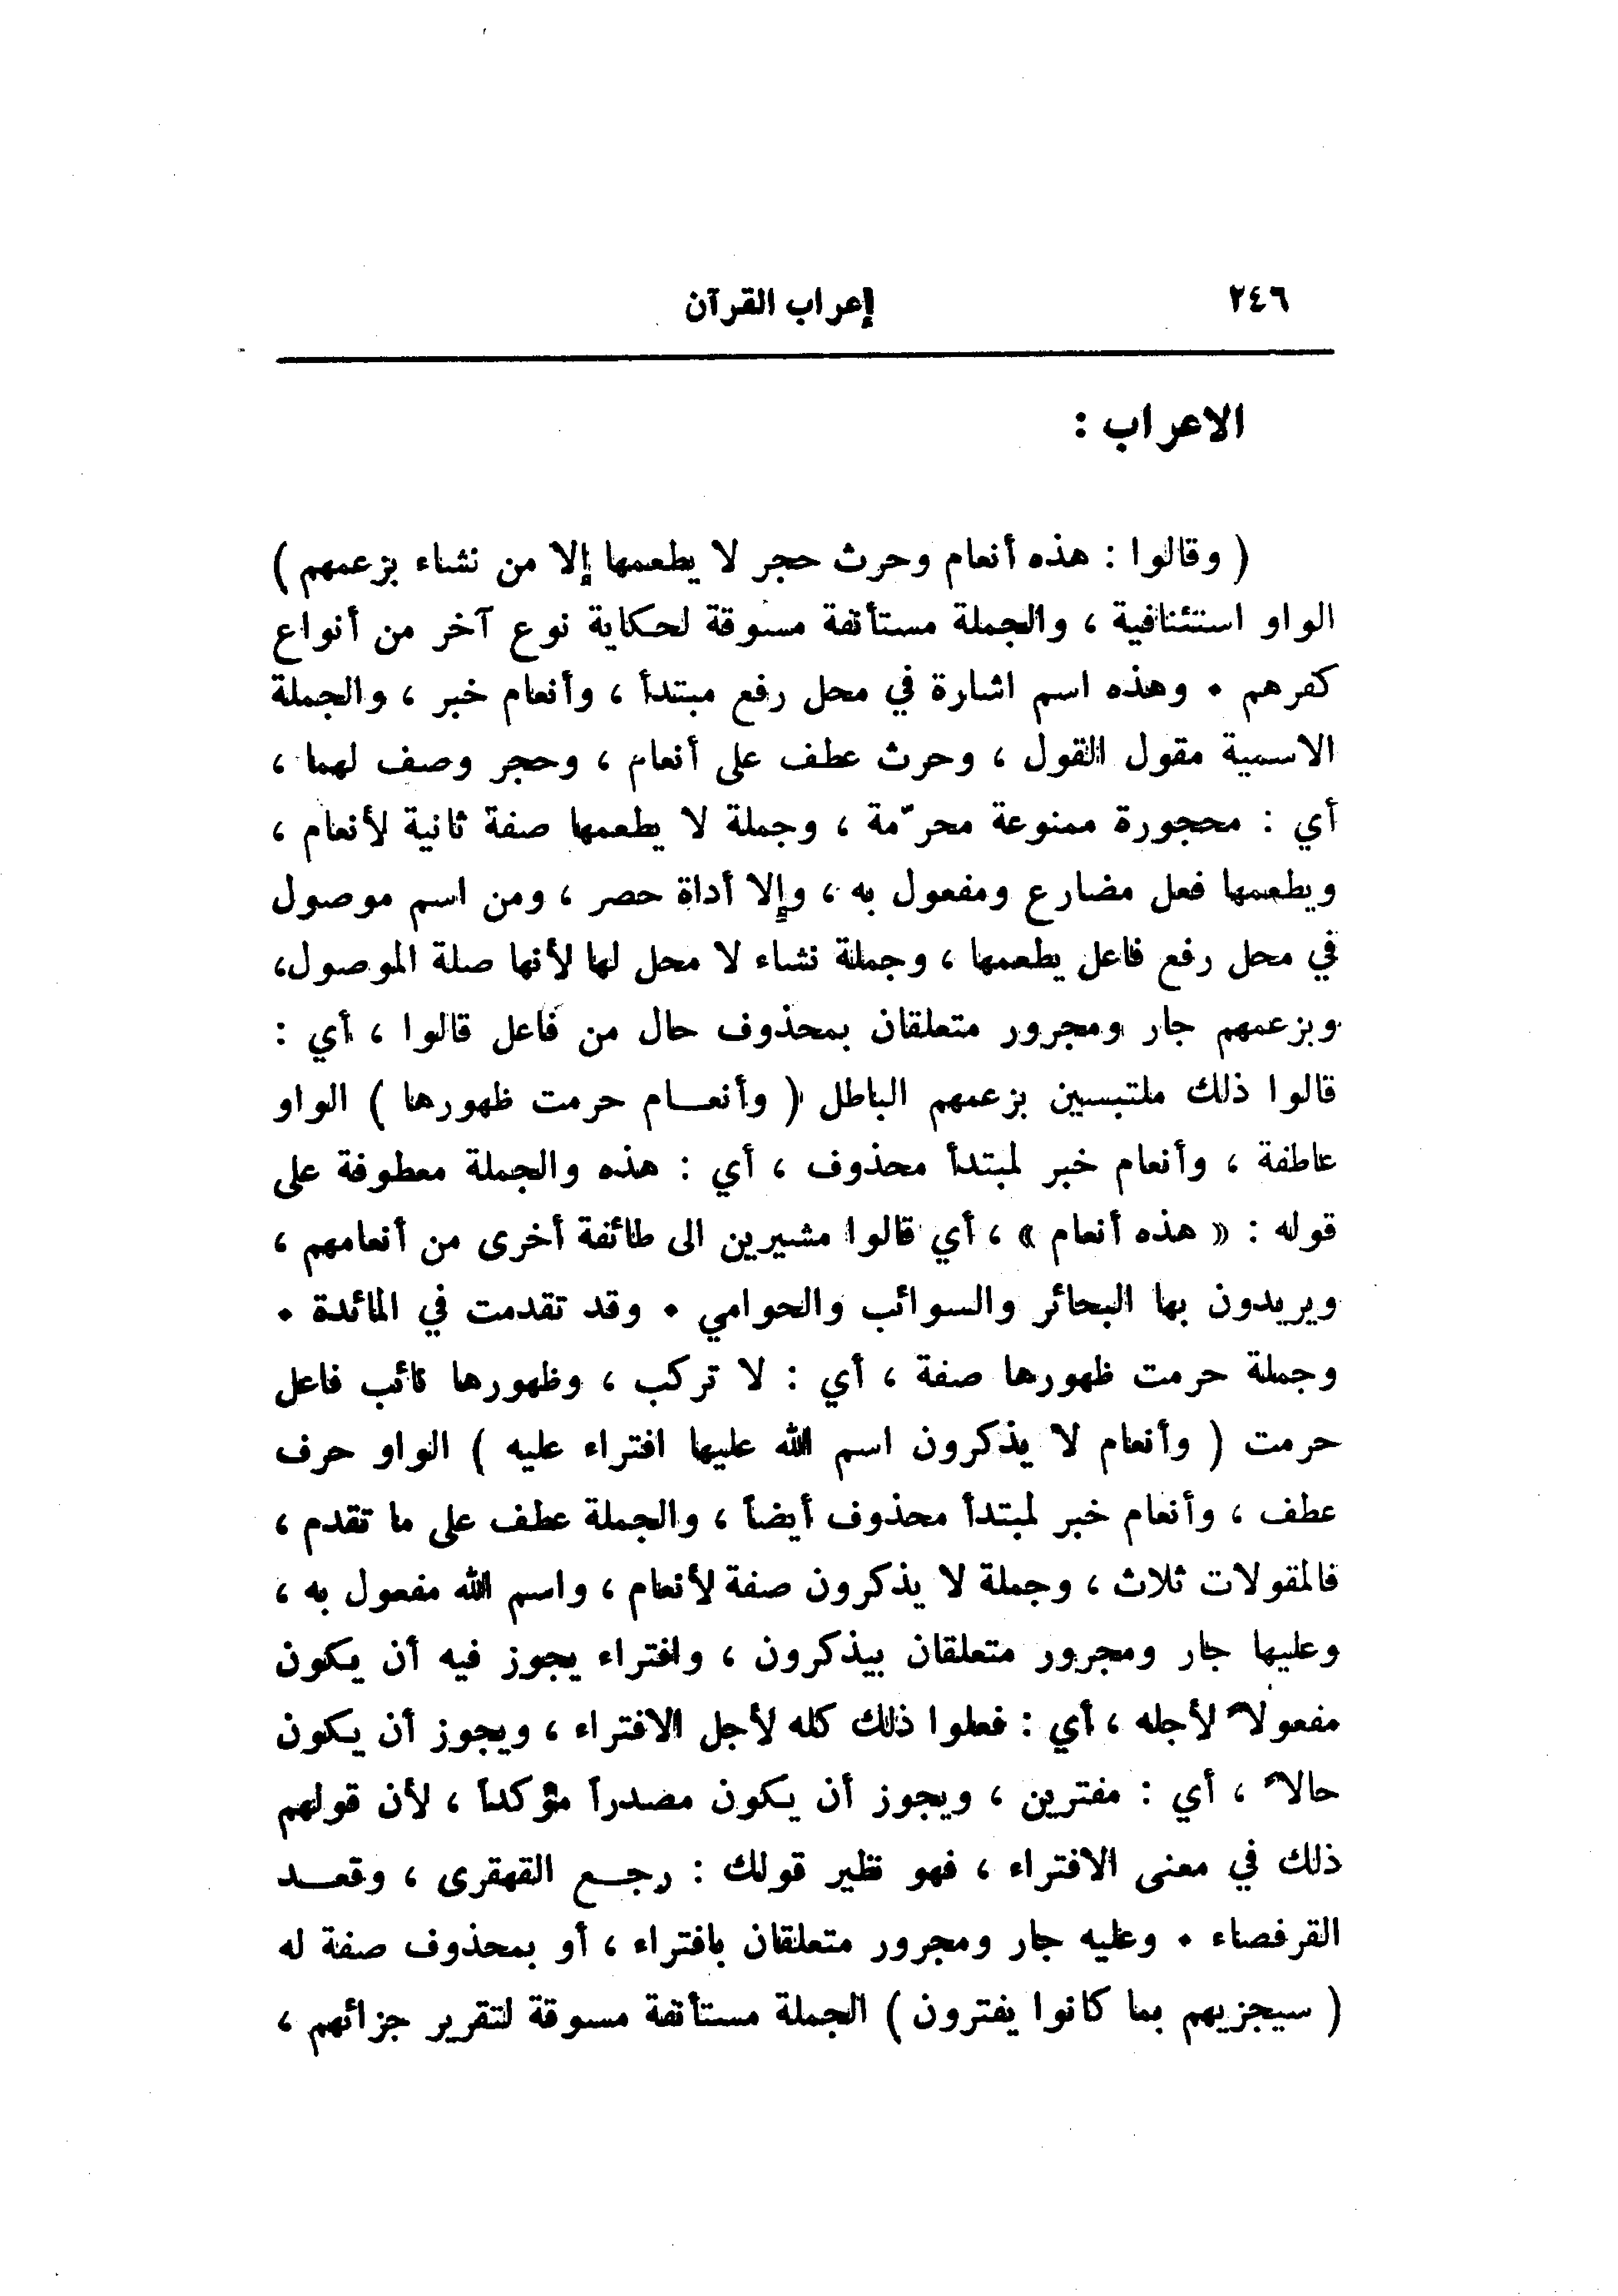 ٢٤٦ إعراب القرآن
الاعراب :
( وقالوا : هذه أنعام وحرث حجر لا يطعمها إلا من نشاء بزعمهم )
الواو استئنافية ، والجملة مستأنفة مسوقة لحكاية نوع آخر من أنواع
كفرهم ٠ وهذه اسم اشارة في محل رفع مبتدأ ، وأنعام خبر ، والجملة
الاسمية مقول القول ، وحرث عطف على أنعام ، وحجر وصف لهما ،
أي : محجورة ممنوعة محرّمة ، وجملة لا يطعمها صفة ثانية لأنعام ،
ويطعمها فعل مضارع ومفعول به ، وإلا أداة حصر ، ومن اسم موصول
في محل رفع فاعل يطعمها ، وجملة نشاء لا محل لها لأنها صلة الموصول،
وبزعمهم جار ومجرور متعلقان بمحذوف حال من فاعل قالوا ، أي :
قالوا ذلك ملتبسين بزعمهم الباطل ( وأنعـــام حرمت ظهورها ) الواو
عاطفة ، وأنعام خبر لمبتدأ محذوف ، أي : هذه والجملة معطوفة على
قوله : « هذه أنعام » ، أي قالوا مشيرين الى طائفة أخرى من أنعامهم ،
ويريدون بها البحائر والسوائب والحوامي ٠ وقد تقدمت في المائدة ٠
وجملة حرمت ظهورها صفة ، أي : لا تركب ، وظهورها نائب فاعل
حرمت ( وأنعام لا يذكرون اسم الله عليها افتراء عليه ) الواو حرف
عطف ، وأنعام خبر لمبتدأ محذوف أيضاً ، والجملة عطف على ما تقدم ،
فالمقولات ثلاث ، وجملة لا يذكرون صفة لأنعام ، واسم الله مفعول به ،
وعليها جار ومجرور متعلقان بيذكرون ، وافتراء يجوز فيه أن يكون
مفعولاً لأجله ، أي : فعلوا ذلك كله لأجل الافتراء ، ويجوز أن يكون
حالاً ، أي : مفترين ، ويجوز أن يكون مصدراً مؤكداً ، لأن قولهم
ذلك في معنى الافتراء ، فهو نظير قولك : رجـــع القهقرى ، وقعـــد
القرفصاء ٠ وعليه جار ومجرور متعلقان بافتراء ، أو بمحذوف صفة له
( سيجزيهم بما كانوا يفترون ) الجملة مستأنفة مسوقة لتقرير جزائهم ،